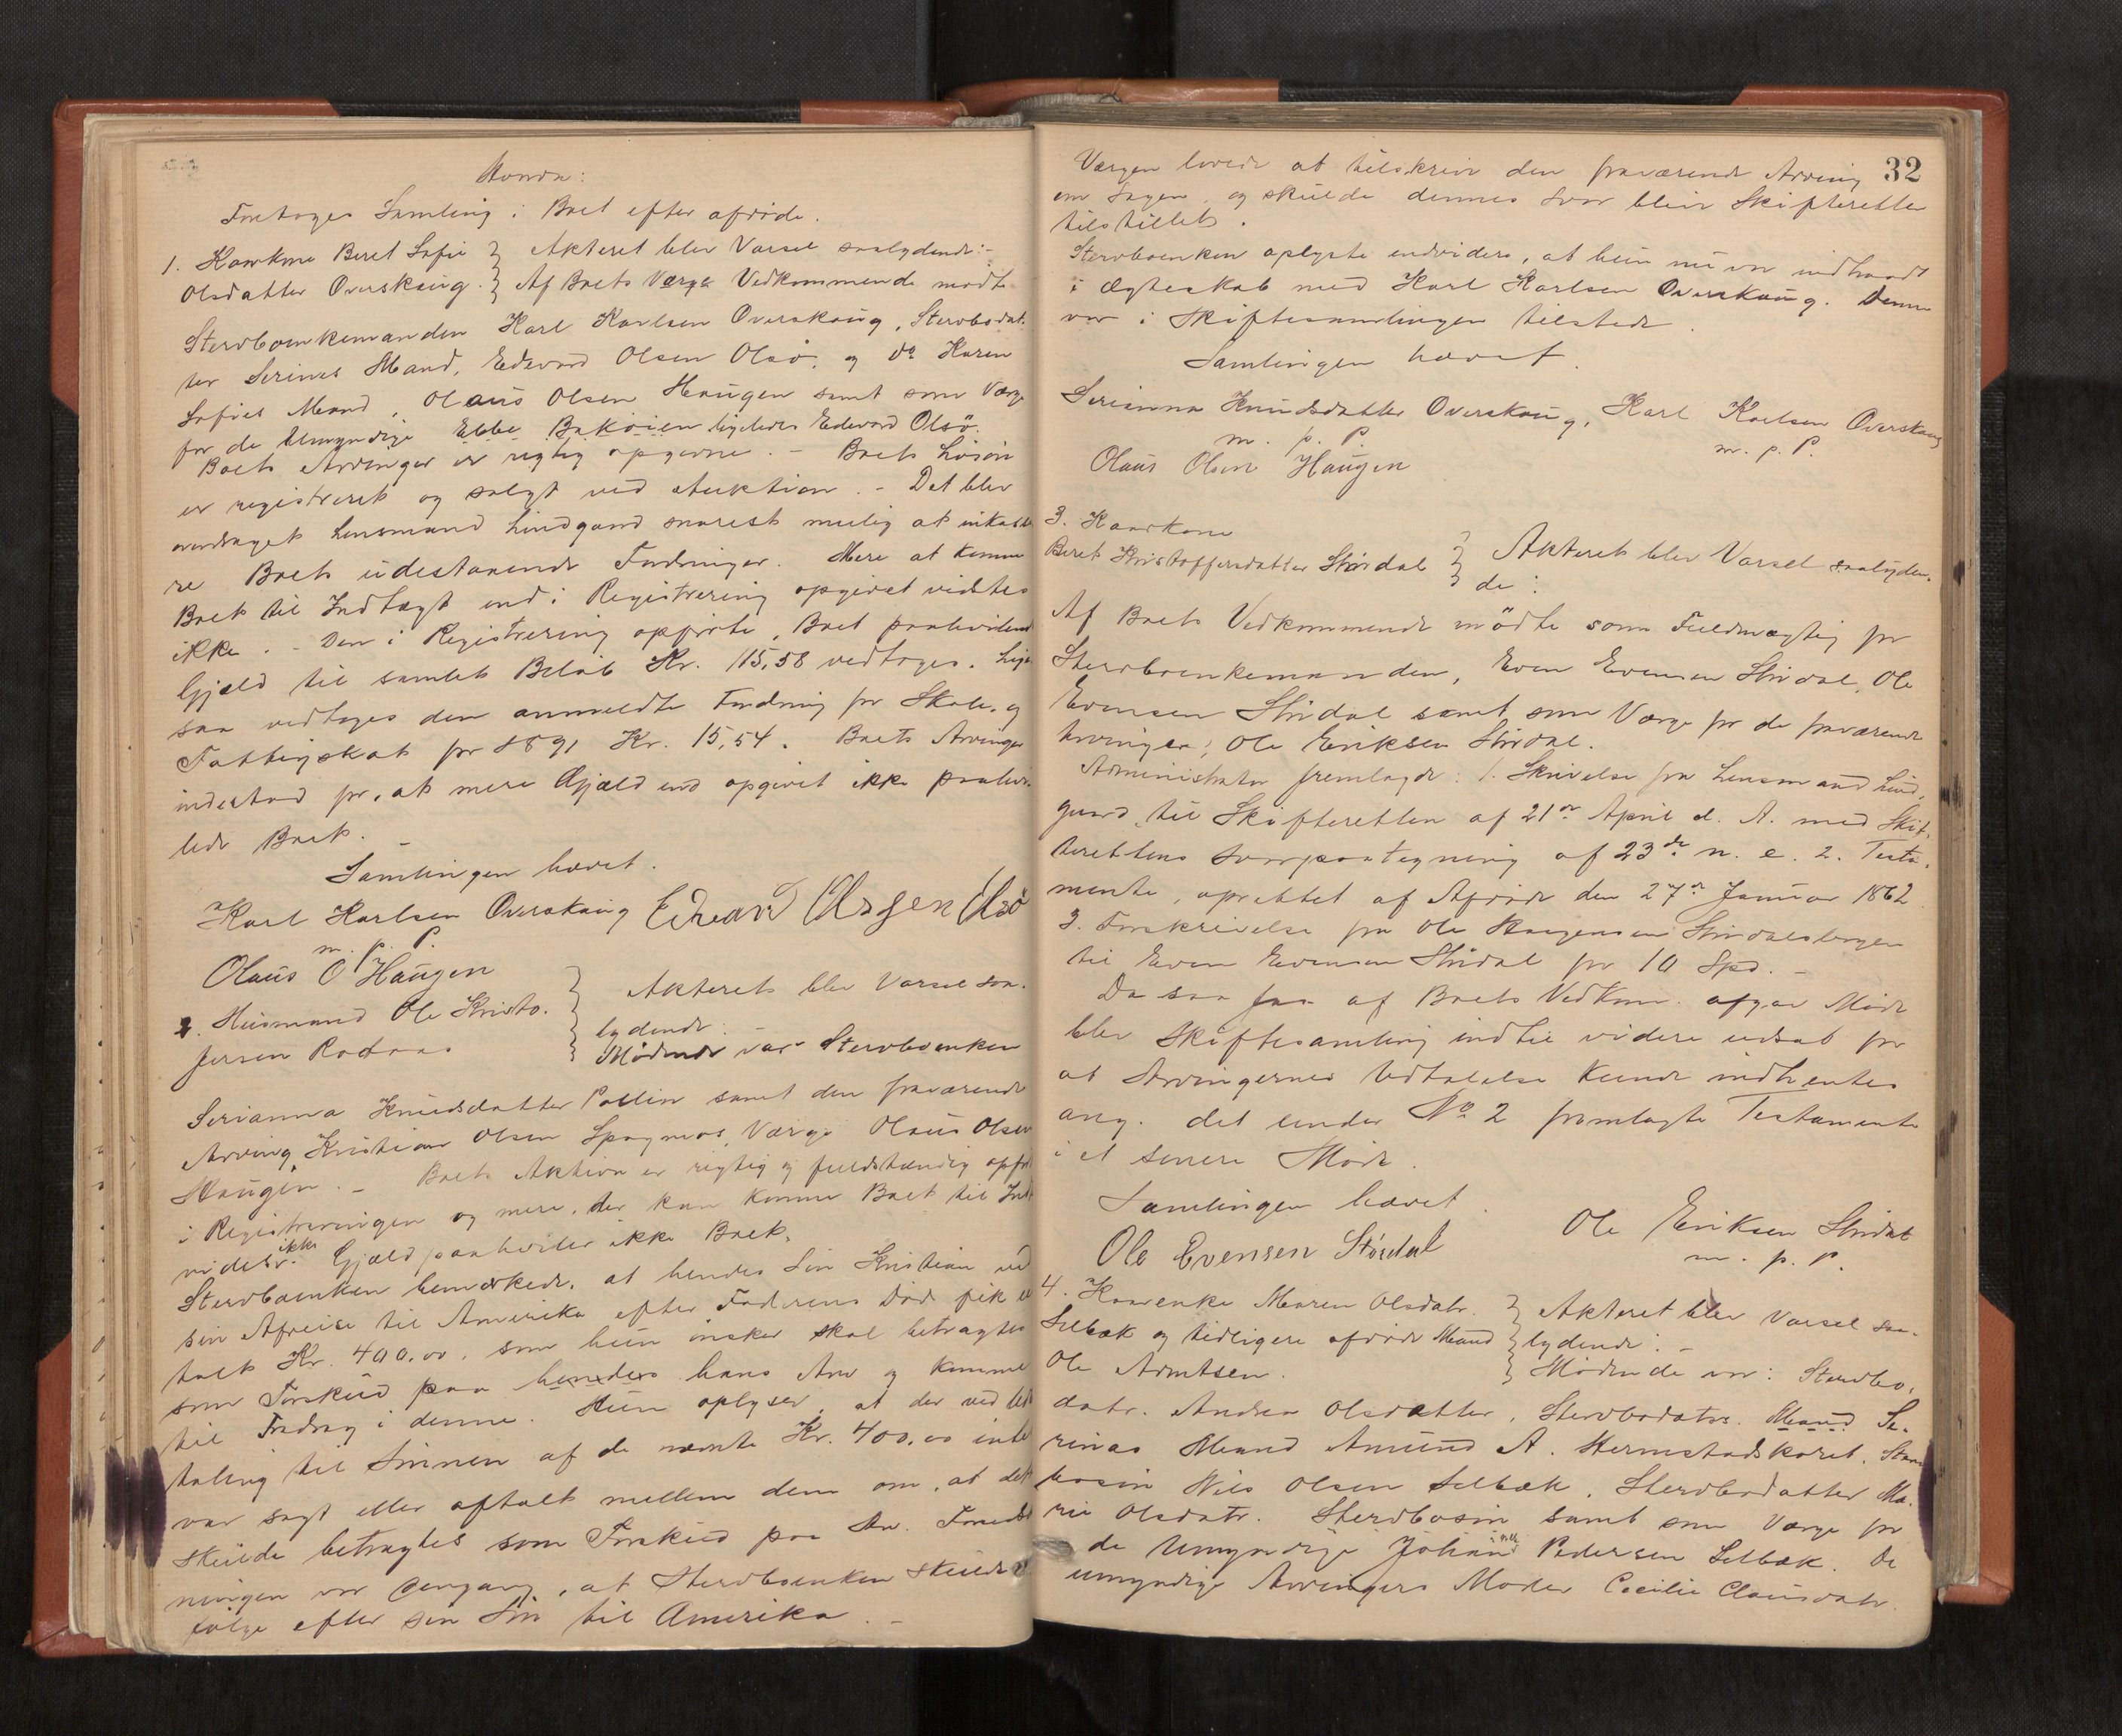 Hvorda:
Foretoges Samling i Boet efter afdöde.
1. Kaarkone Beret Sofie } Akteret blev Varsel saalydende:-
Olsdatter Overskaug. } Af Boets Værge Vedkommende mødte
Stervboenkemanden Karl Karlsen Overskaug, Stervbodat-
ter Serines Mand, Edevard Olsen Olsö, og do Karen
Sofies Mand, Olaus Olsen Haugen samt som Værge
for de Umyndige Ebbe Baköien ligeledes Edevard Olsö.
Boets Arvinger er rigtig opgivne. - Boets Lösöre
er registreret og solgt ved Auktion. - Det blev
overdraget Lensmand Lindgaard snarest mulig at inkasse-
re Boets udestaaende Fordringer. Mere at komme
Boet til Indtægt end i Registrering opgivet vidstes
ikke. - Den i Registrering opförte, Boet paahvilende
Gjæld til samlet Belöb Kr. 115,58 vedtoges. Lige-
saa vedtoges den anmeldte Fordring for Skole- og
Fattigskat for 1891 Kr. 15,54. Boets Arvinger
indestod for, at mere Gjæld end opgivet ikke paahvi-
lede Boet.
Samlingen hævet.
Karl Karlsen Overskaug Edvard Olsen Olsö
m. p. P.
Olaus O Haugen
2. Husmand Ole Kristo- } Akteret blev Varsel saa-
fersen } lydende. -
Mödende var Stervboenken
Serianna Knudsdatter samt den fraværende
Arving Kristian Olsen Værge Olaus Olsen
Haugen. - Boets Aktiva er rigtig og fuldstændig opfört
i Registreringen og mere, der kan komme Boet til Ind-
vides ikke. Gjæld paahviler ikke Boet.
Stervboenken bemærkede, at hendes Sön Kristian ved
sin Afreise til Amerika efter Faderens Död fik ud-
talt Kr. 400,00, som hun önsker skal betragtes
som Forskud paa hendes hans Arv og komme
til Fradrag i denne. Hun oplyser, at der ved Ud-
taling til Sönnen af de nævnte Kr. 400,00 intet
var sagt eller aftalt mellem dem om, at det
skulde betragtes som Forskud paa Arv. Forudsæt-
ningen var dengang, at Stervboenken skulde
fölge efter sin Sön til Amerika. -
32
Værgen lovede at tilskrive den fraværende Arving
om Sagen, og skulde dennes Svar blive Skifteretten
tilstillet.
Stervboenken oplyste endvidere, at hun nu var indtraadt
i Ægteskab med Karl Karlsen Overskaug. Denne
var i Skiftesamlingen tilstede.
Samlingen hævet.
Serianna Knudsdatter Overskaug, Karl Karlsen Overskaug
m. p. P. m. p. P.
Olaus Olsen Haugen
3. Kaarkone
Beret Kristoffersdatter Stördal } Akteret blev Varsel saalyden-
de:
Af Boets Vedkommende mödte som Fuldmægtig for
Stervboenkemanden, Even Evensen Stördal, Ole
Evensen Stördal samt som Værge for de fraværende
Arvinger, Ole Eriksen Stördal.
Administrator fremlagde: 1. Skrivelse fra Lensmand Lind-
gaard til Skifteretten af 21de April d. A. med Skif-
terettens Svarpaategning af 23de n. e. 2. Testa-
mente, oprettet af Afdöde den 27de Januar 1862
3. Forskrivelse fra Ole
til Even Evensen Stördal for 10 Spd. -
Da saa faa af Boets Vedkom. afgav Möde
blev Skiftesamling indtil videre udsat for
at Arvingernes Udtalelse kunde indhentes
ang. det under No 2 fremlagte Testamente
i et senere Möde.
Samlingen hævet.
Ole Evensen Stördal Ole Eriksen Stördal
m. p. P.
4. Kaarenke Maren Olsdatr. } Akteret blev Varsel saa-
Selbæk og tidligere afdöde Mand } lydende: -
Ole Arntsen. } Mödende var: Stervbo-
datr. Andrea Olsdatter, Stervbodatrs. Mand Se-
rinas Mand Amund A. Hermstadskaret, Sterv-
bosön Nils Olsen Selbæk, Stervbodatter Ma-
rie Olsdatr. Stervbosön samt som Værge for
de Umyndige Johan Pedersen Selbæk. De
umyndige Arvingers Moder Cecilie Clausdatr.